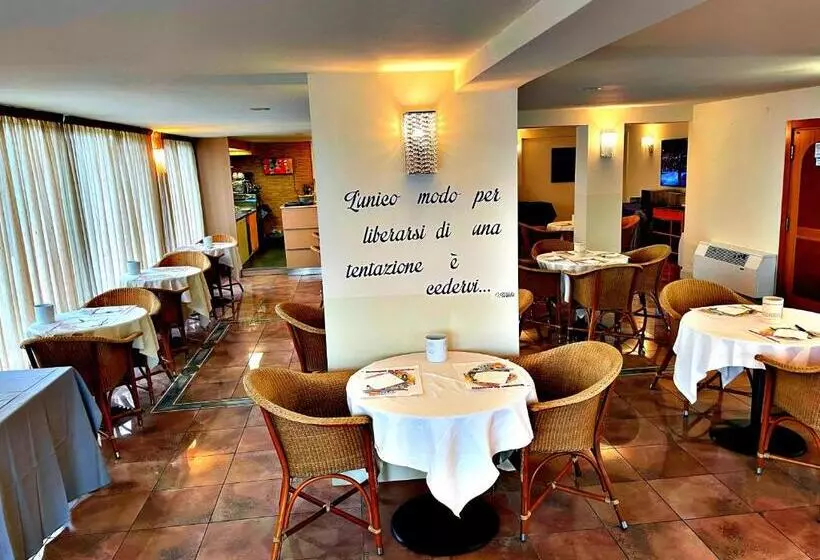 L'unico modo per
liberarsi di una
tentazione è
cedervi...